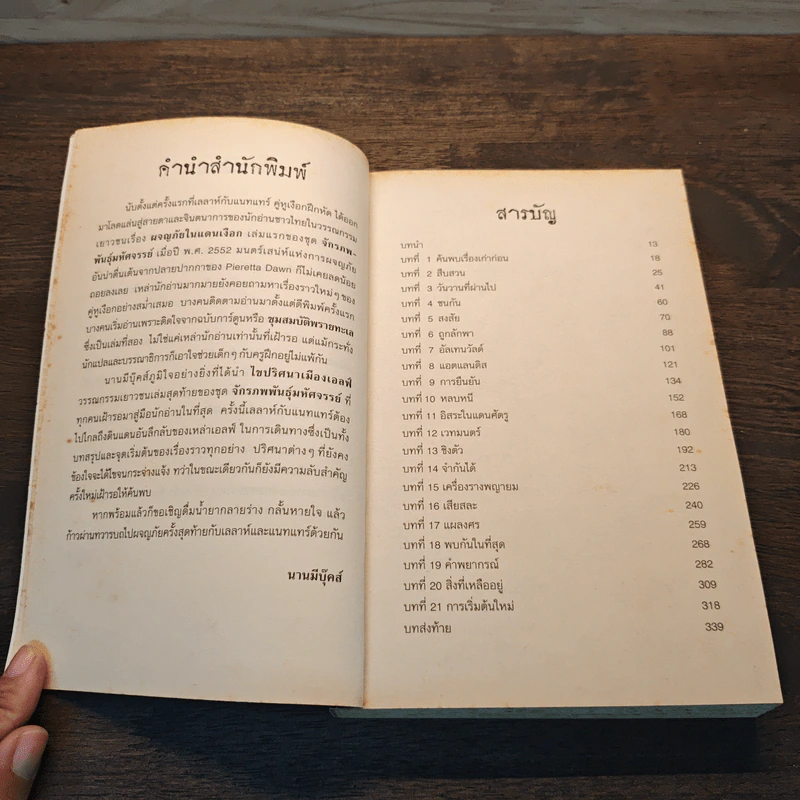 คำนำสำนักพิมพ์
นับตั้งแต่ครั้งแรกที่เลลาห์กับแนทแทร์ คู่หูเงือกฝึกหัด ได้ออก
มาโลดแล่นสู่สายตาและจินตนาการของนักอ่านชาวไทยในวรรณกรรม
เยาวชนเรื่อง ผจญภัยในแดนเงือก เล่มแรกของชุด จักรภพ-
พันธุ์มหัศจรรย์ เมื่อปี พ.ศ. 2552 มนตร์เสน่ห์แห่งการผจญภัย
อันน่าตื่นเต้นจากปลายปากกาของ Pieretta Dawn ก็ไม่เคยลดน้อย
ถอยลงเลย เหล่านักอ่านมากมายยังคอยถามหาเรื่องราวใหม่ๆ ของ
คู่หูเงือกอย่างสม่ำเสมอ บางคนติดตามอ่านมาตั้งแต่ตีพิมพ์ครั้งแรก
บางคนเริ่มอ่านเพราะติดใจจากฉบับการ์ตูนหรือ ขุมสมบัติพรายทะเล
ซึ่งเป็นเล่มที่สอง ไม่ใช่แค่เหล่านักอ่านเท่านั้นที่เฝ้ารอ แต่แม้กระทั่ง
นักแปลและบรรณาธิการก็เอาใจช่วยเด็กๆ กับครูฝึกอยู่ไม่แพ้กัน
นานมีบุ๊คส์ภูมิใจอย่างยิ่งที่ได้นำ ไขปริศนาเมืองเอลฟ์
วรรณกรรมเยาวชนเล่มสุดท้ายของชุด จักรภพพันธุ์มหัศจรรย์ ที่
ทุกคนเฝ้ารอมาสู่มือนักอ่านในที่สุด ครั้งนี้เลลาห์กับแนทแทร์ต้อง
ไปไกลถึงดินแดนอันลึกลับของเหล่าเอลฟ์ ในการเดินทางซึ่งเป็นทั้ง
บทสรุปและจุดเริ่มต้นของเรื่องราวทุกอย่าง ปริศนาต่างๆ ที่ยังคง
ข้องใจจะได้ไขจนกระจ่างแจ้ง ทว่าในขณะเดียวกันก็ยังมีความลับสำคัญ
ครั้งใหม่เฝ้ารอให้ค้นพบ
หากพร้อมแล้วก็ขอเชิญดื่มน้ำยากลายร่าง กลั้นหายใจ แล้ว
ก้าวผ่านทวารบถไปผจญภัยครั้งสุดท้ายกับเลลาห์และแนทแทร์ด้วยกัน
นานมีบุ๊คส์
สารบัญ
บทนำ 13
บทที่ 1 ค้นพบเรื่องเก่าก่อน 18
บทที่ 2 สืบสวน 25
บทที่ 3 วันวานที่ผ่านไป 41
บทที่ 4 ชนกัน 60
บทที่ 5 สงสัย 70
บทที่ 6 ถูกลักพา 88
บทที่ 7 อัลเทนวัลด์ 101
บทที่ 8 แอตแลนติส 121
บทที่ 9 การยืนยัน 134
บทที่ 10 หลบหนี 152
บทที่ 11 อิสระในแดนศัตรู 168
บทที่ 12 เวทมนตร์ 180
บทที่ 13 ชิงตัว 192
บทที่ 14 จำกันได้ 213
บทที่ 15 เครื่องรางพญายม 226
บทที่ 16 เสียสละ 240
บทที่ 17 แผลงศร 259
บทที่ 18 พบกันในที่สุด 268
บทที่ 19 คำพยากรณ์ 282
บทที่ 20 สิ่งที่เหลืออยู่ 309
บทที่ 21 การเริ่มต้นใหม่ 318
บทส่งท้าย 339